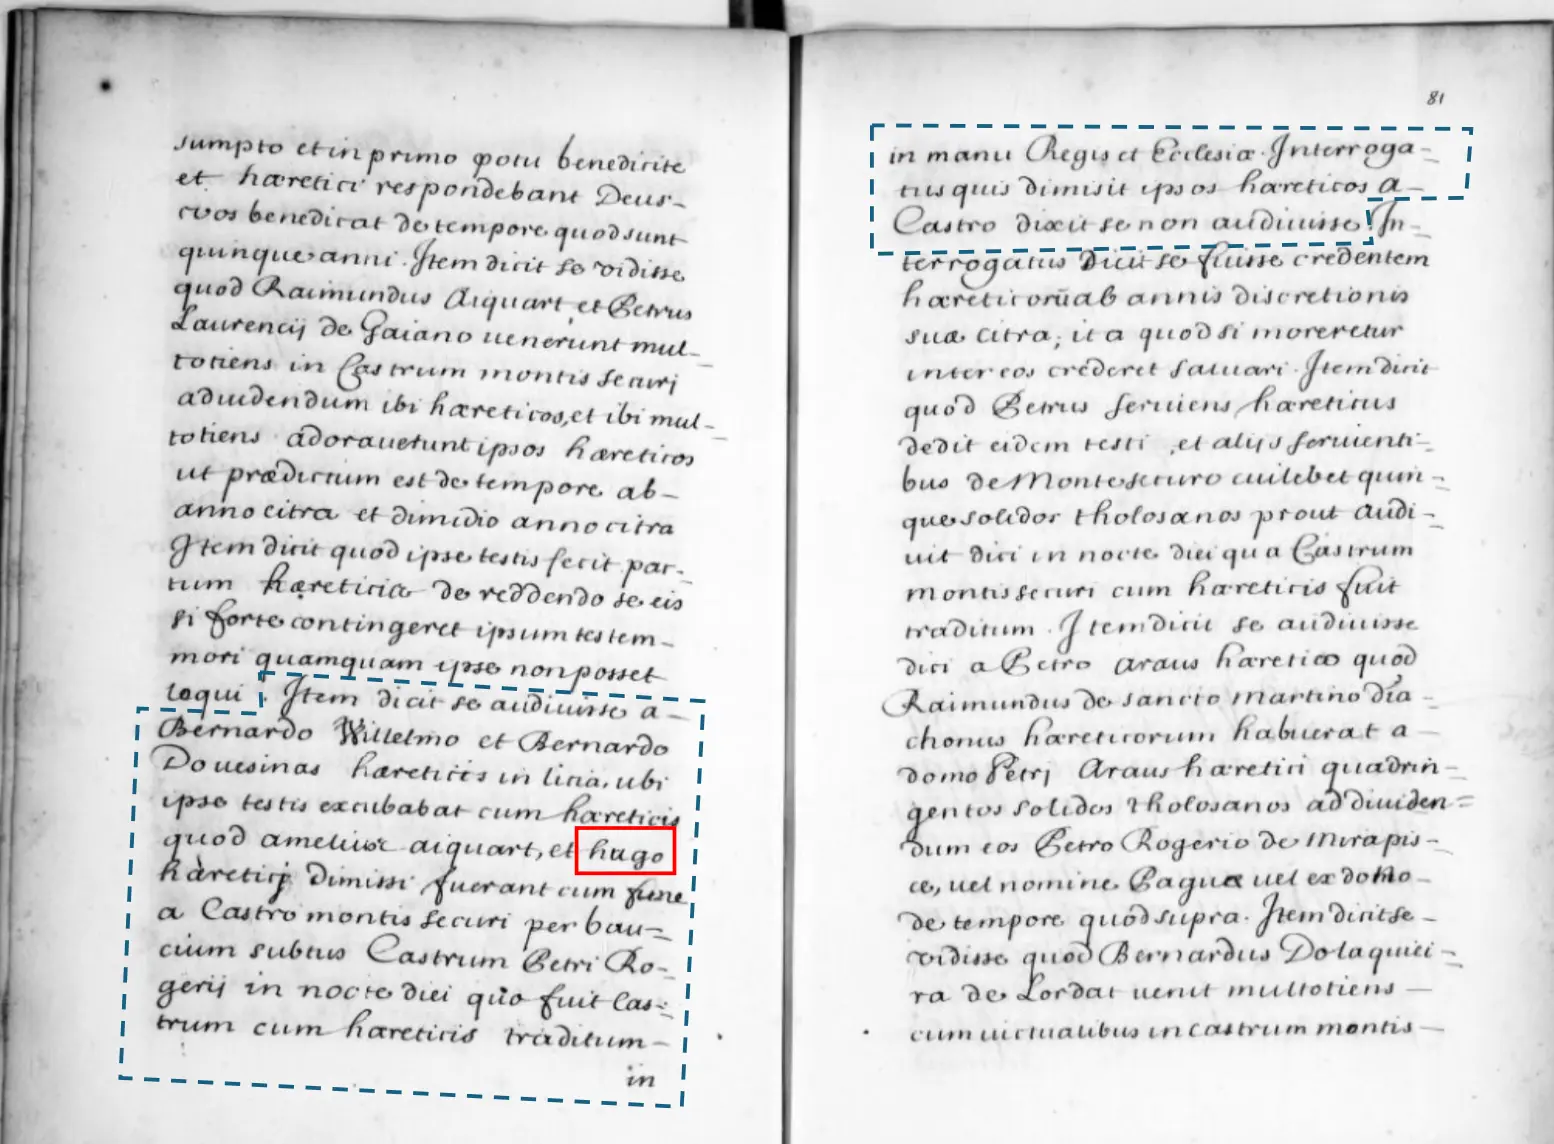 sumpto et in primo potu benedicite
et hæretici respondebant Deus-
vos benedicat de tempore quod sunt
quinque anni. Item dicit se vidisse
quod Raimundus Aiquart, et Petrus
Laurencij de Gaiano uenerunt mul-
totiens in Castrum montis securj
aduidendum ibi hæreticos, et ibi mul-
totiens adorauerunt ipsos hæreticos
ut prædictum est de tempore ab-
anno citra et dimidio anno citra
Item dicit quod ipse testis fecit pac-
tum hæreticis de reddendo se eis
si forte contingeret ipsum testem-
mori quamquam ipse non posset
loqui. Item dicit se audiuisse a-
Bernardo Willelmo et Bernardo
Douesinas hæreticis in licia, ubi
ipse testis excubabat cum hæreticis
quod amelius aiquart, et hugo
hæreticj dimissi fuerant cum fune
a Castro montis securi per bau-
cium subtus Castrum Petri Ro-
gerij in nocte diei quo fuit Cas-
trum cum hæreticis traditum-
in
81
in manu Regis et Ecclesiæ. Interroga-
tus quis dimisit ipsos hæreticos a-
Castro dixit se non audiuisse. In-
terrogatus dicit se fuisse credentem
hæreticorū ab annis discretionis
suæ citra; ita quod si moreretur
inter eos crederet saluari. Item dicit
quod Petrus seruiens hæreticus
dedit eidem testi, et alijs seruienti-
bus de Montesecuro cuilebet quin-
que solidos tholosanos prout audi-
uit dici in nocte diei qua Castrum
montis securi cum hæreticis fuit
traditum. Item dicit se audiuisse
dici a Petro araus hæretico quod
Raimundus de sancto martino dia-
chonus hæreticorum habuerat a-
domo Petrj Araus hæretici quadrin-
gentos solidos tholosanos ad diuiden-
dum eos Petro Rogerio de mirapis-
ce, uel nomine Paguæ uel ex domo-
de tempore quod supra. Item dicit se-
vidisse quod Bernardus Dolaquiei-
ra de Lordat uenit multotiens-
cum uictualibus in castrum montis-